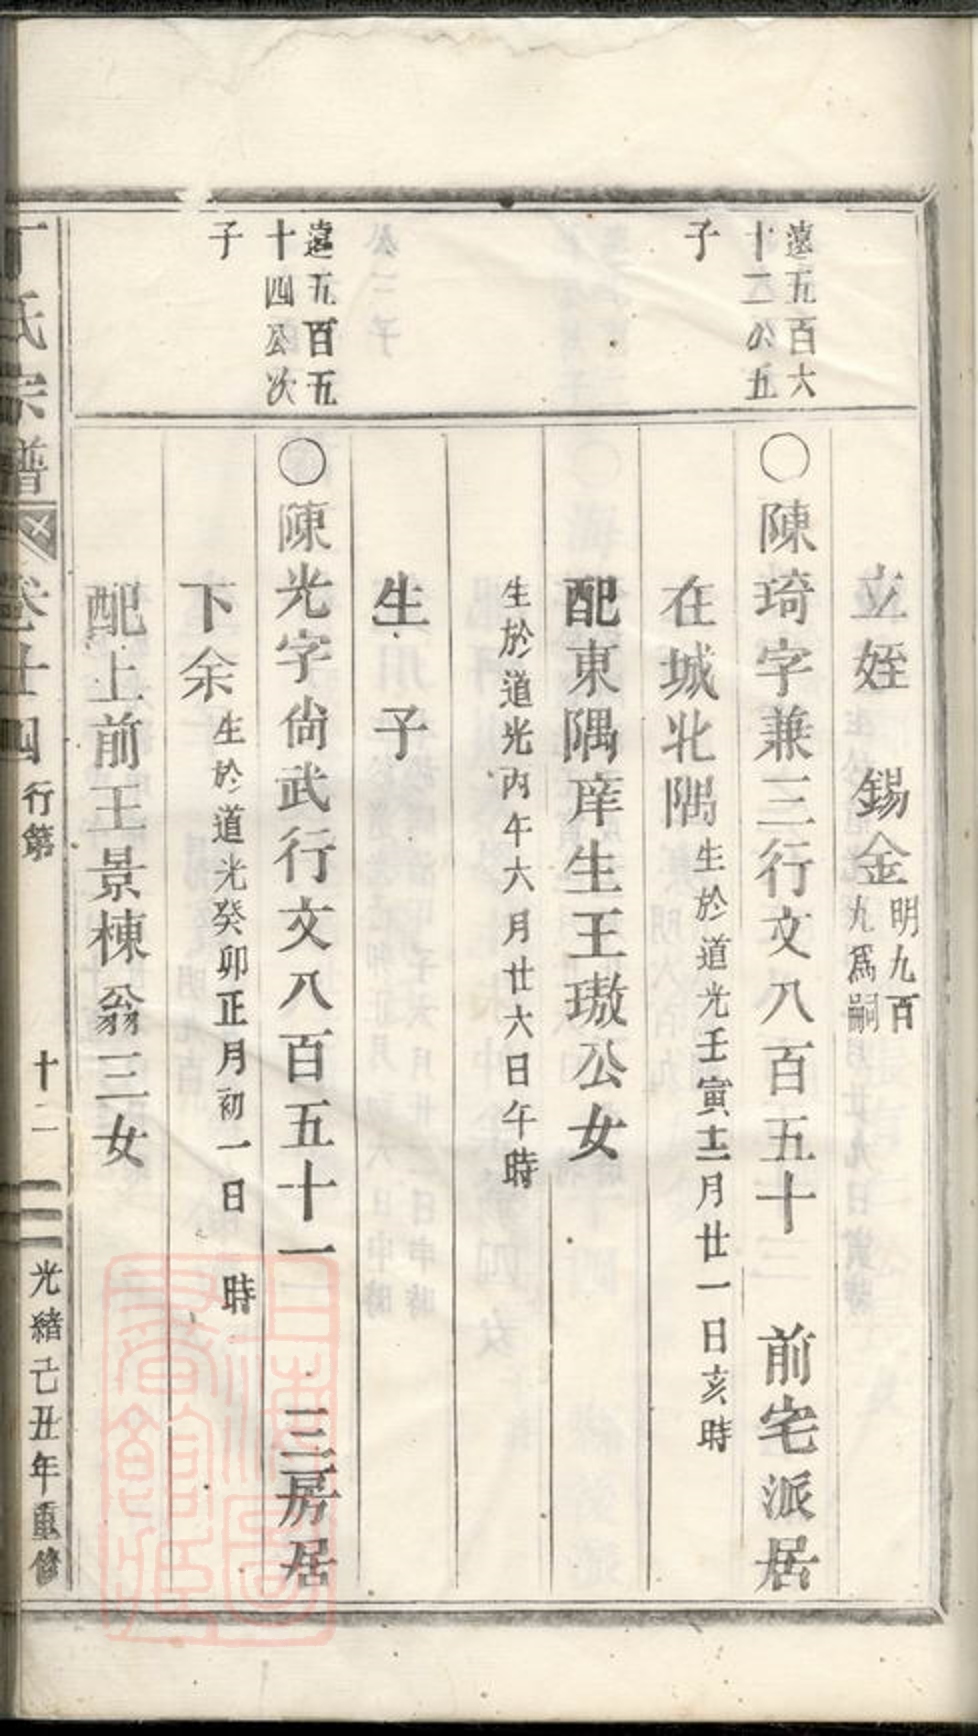 立姪　錫金明九百九為嗣
遠五百六十二公五子
〇陳琦字兼三行文八百五十　前宅派居
在城北隅生於道光壬寅十二月廿一日亥時
配東隅庠生王璈公女
生於道光丙午六月廿六日午時
生　子
遠五百五十四公次子
〇陳光字尚武行文八百五十一　三房居
下余生於道光癸卯正月初一日　時
配上前王景棟翁三女
丁氏宗譜　卷十四　行第　十二　光緒己丑年重修
上海圖書館藏